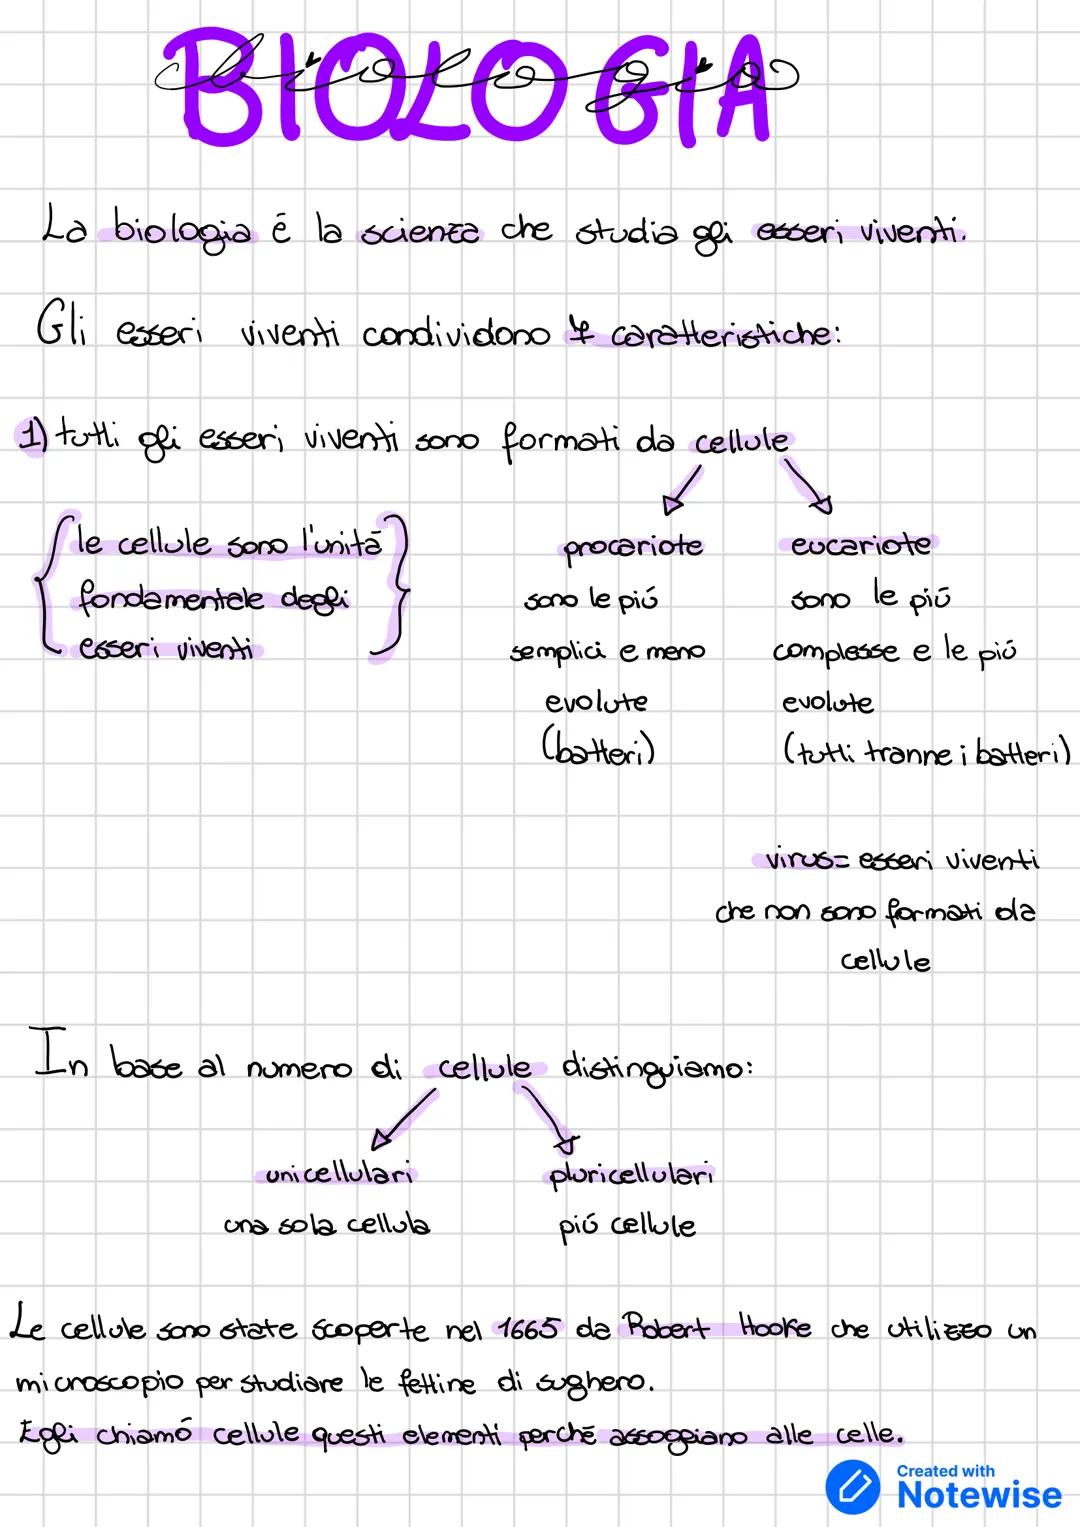 BIOLOGIA
biologia
La biologia é la scienza che studia gli esseri viventi.
Gli esseri viventi condividono 7 caratteristiche:
1) tutti gli esseri viventi sono formati da cellule
le cellule sono l'unitá
fondamentale degli
esseri viventi
procariote
sono le piú
semplici e meno
evolute
(batteri)
eucariote
sono le piú
complesse e le piú
evolute
(tutti tranne i batteri)
virus= esseri viventi
che non sono formati da
cellule
In base al numero di cellule distinguiamo:
unicellulari
una sola cellula
pluricellulari
piú cellule
Le cellule sono state scoperte nel 1665 da Robert Hooke che utilizzo un
microscopio per studiare le fettine di sughero.
Egli chiamó cellule questi elementi perché assoggiano alle celle.
Created with
Notewise